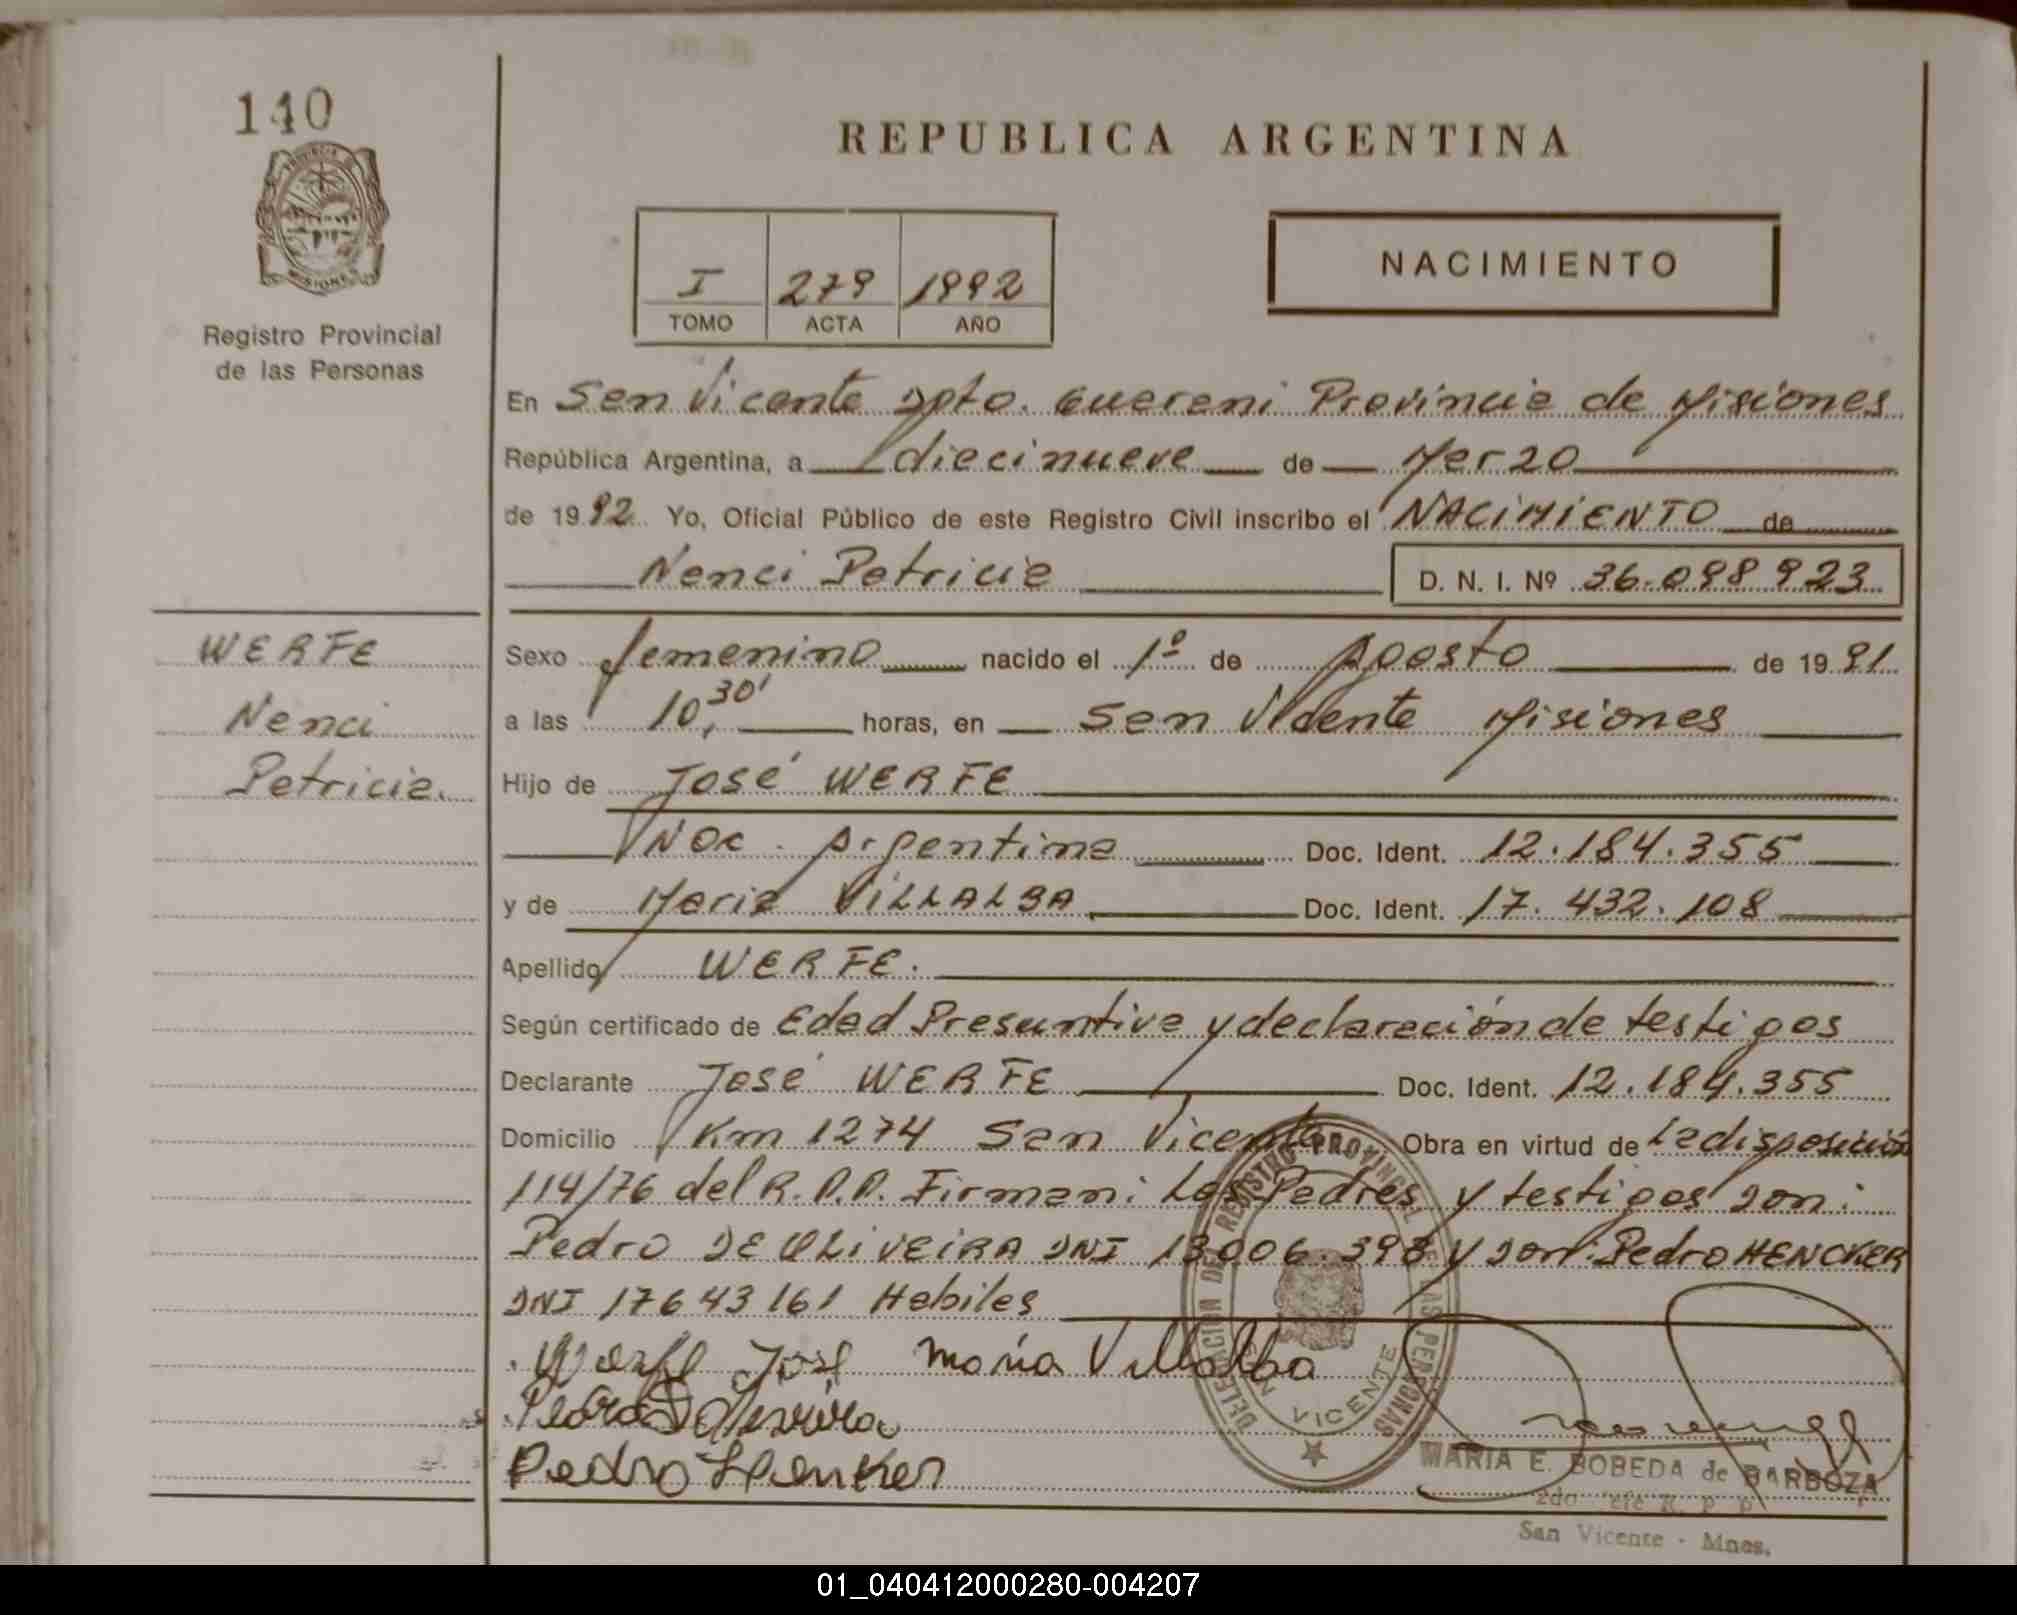 140
REPUBLICA ARGENTINA
PROVINCIA DE
MISIONES
Registro Provincial
de las Personas
I 279 1992
TOMO ACTA AÑO
NACIMIENTO
En San Vicente Dpto. Guarani Provincia de Misiones
República Argentina, a diecinueve de Marzo
de 1992 Yo, Oficial Público de este Registro Civil inscribo el NACIMIENTO de
Nanci Patricia D. N. I. Nº 36.098923
WERFE
Nanci
Patricia.
Sexo femenino nacido el 1º de Agosto de 1991
a las 10,30' horas, en San Vicente Misiones
Hijo de José WERFE
Nac. Argentina Doc. Ident. 12.184.355
y de Maria VILLALBA Doc. Ident. 17.432.108
Apellido WERFE.
Según certificado de Edad Presuntiva y declaración de testigos
Declarante José WERFE Doc. Ident. 12.184.355
Domicilio Km 1274 San Vicente Obra en virtud de La disposición
114/76 del R.P.P. Firman: Los Padres y testigos Don:
Pedro DE OLIVEIRA DNI 13006.398 y Don: Pedro HENCKER
DNI 17643161 Habiles
Werff José Maria Villalba
Pedro D Oliveira
Pedro Henker
DELEGACION DEL REGISTRO PROVINCIAL DE LAS PERSONAS
SAN VICENTE
MARIA E. BOBEDA de BARBOZA
2do Jefe R. P. P.
San Vicente - Mnes.
01_040412000280-004207